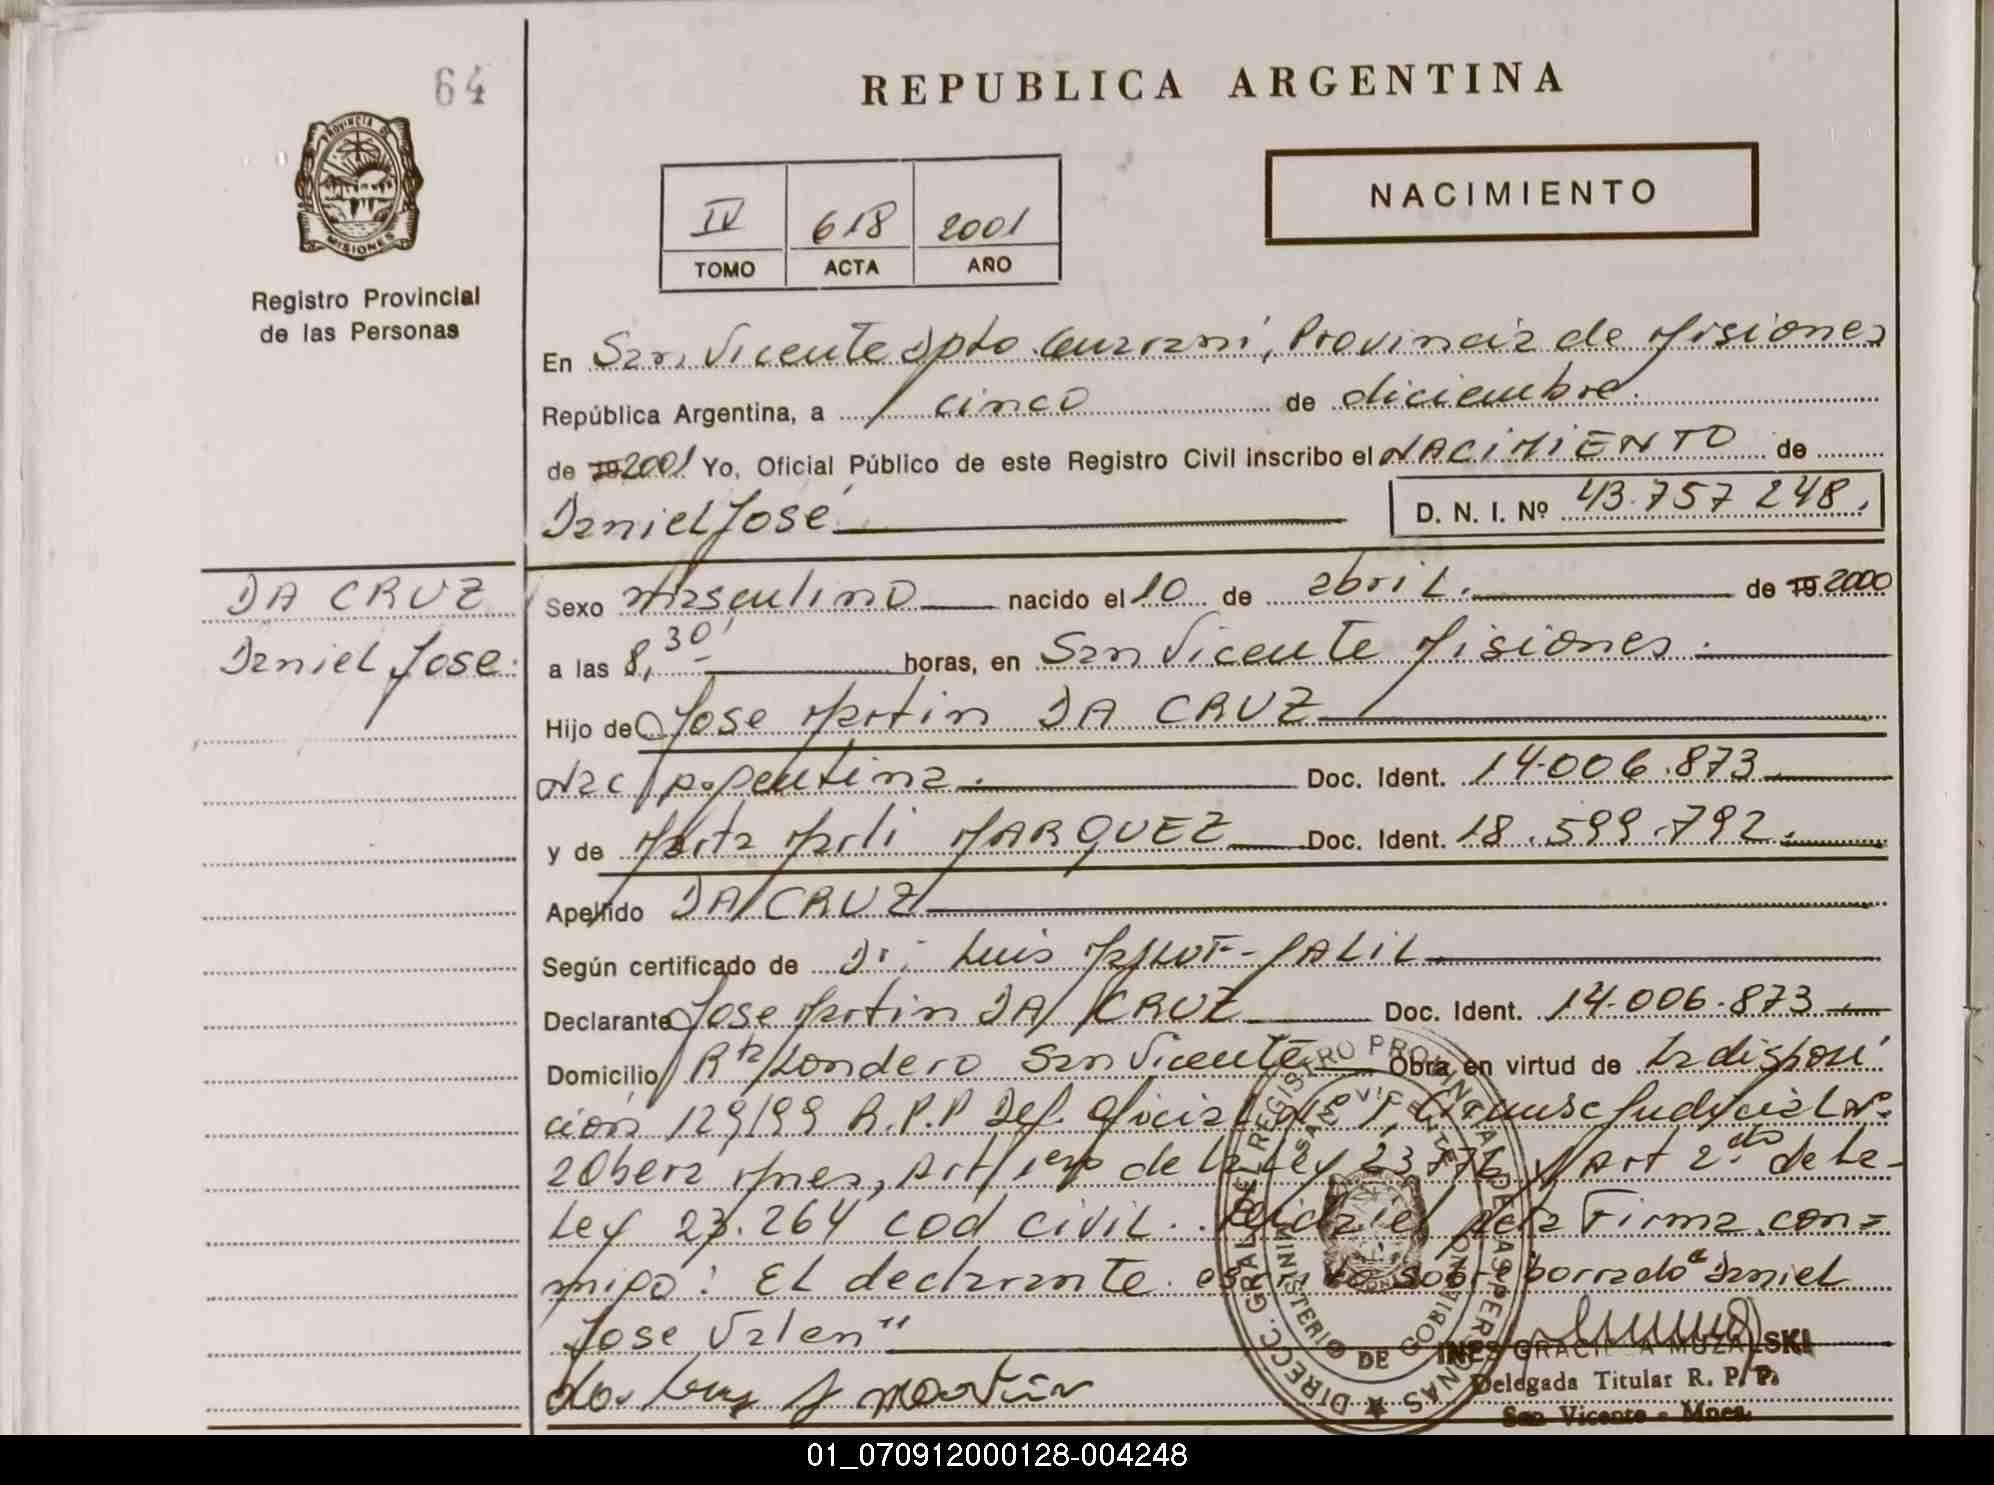 64
REPUBLICA ARGENTINA
PROVINCIA DE
MISIONES
Registro Provincial
de las Personas
IV 618 2001
TOMO ACTA AÑO
NACIMIENTO
En San Vicente Dpto Guarani, Provincia de Misiones
República Argentina, a cinco de diciembre
de 19 2001 Yo, Oficial Público de este Registro Civil inscribo el NACIMIENTO de
Daniel José
D. N. I. Nº 43.757 248.
DA CRUZ
Daniel Jose.
Sexo masculino nacido el 10 de abril. de 19 2000
a las 8,30 horas, en San Vicente Misiones.
Hijo de Jose Martin DA CRUZ
Nac Argentina. Doc. Ident. 14.006.873
y de Marta Marli MARQUEZ Doc. Ident. 18.599.792.
Apellido DA CRUZ
Según certificado de Dr. Luis
Declarante Jose Martin DA CRUZ Doc. Ident. 14.006.873
Domicilio Rta Londero San Vicente Obra en virtud de la disposi
ción 129/99 R.P.P Def. Oficial Nº 1, Judicial Nº
2 Obera Mnes, Art 1ero de la Ley 23.776 y Art 2do de la
Ley 23.264 cod civil. Leida el acta Firma con=
migo: El declarante. escrito sobre borrado "Daniel
Jose Valen"
Da Cruz J Martin
DIRECC. GRAL. DEL REGISTRO PROVINCIAL DE LAS PERSONAS
SAN VICENTE
MINISTERIO DE GOBIERNO
INES GRACIELA MUZALSKI
Delegada Titular R. P. P.
San Vicente - Mnes.
01_070912000128-004248